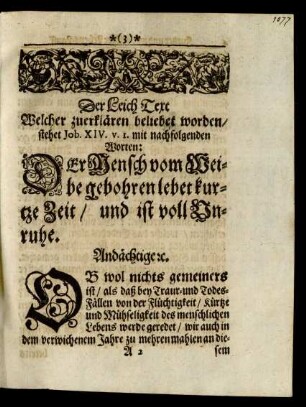 1077
*(3)*
Der Leich Text
Welcher zuerklären beliebet worden/
stehet Job. XIV. v. 1. mit nachfolgenden
Worten:
DEr Mensch vom Wei-
be gebohren lebet kur-
tze Zeit / und ist voll Un-
ruhe.
Andächtige ꝛc.
OB wol nichts gemeiners
ist / als daß bey Traur-und Todes-
Fällen von der Flüchtigkeit / Kürtze
und Mühseligkeit des menschlichen
Lebens werde geredet / wir auch in
dem verwichenem Jahre zu mehren mahlen an die-
A 2 sem